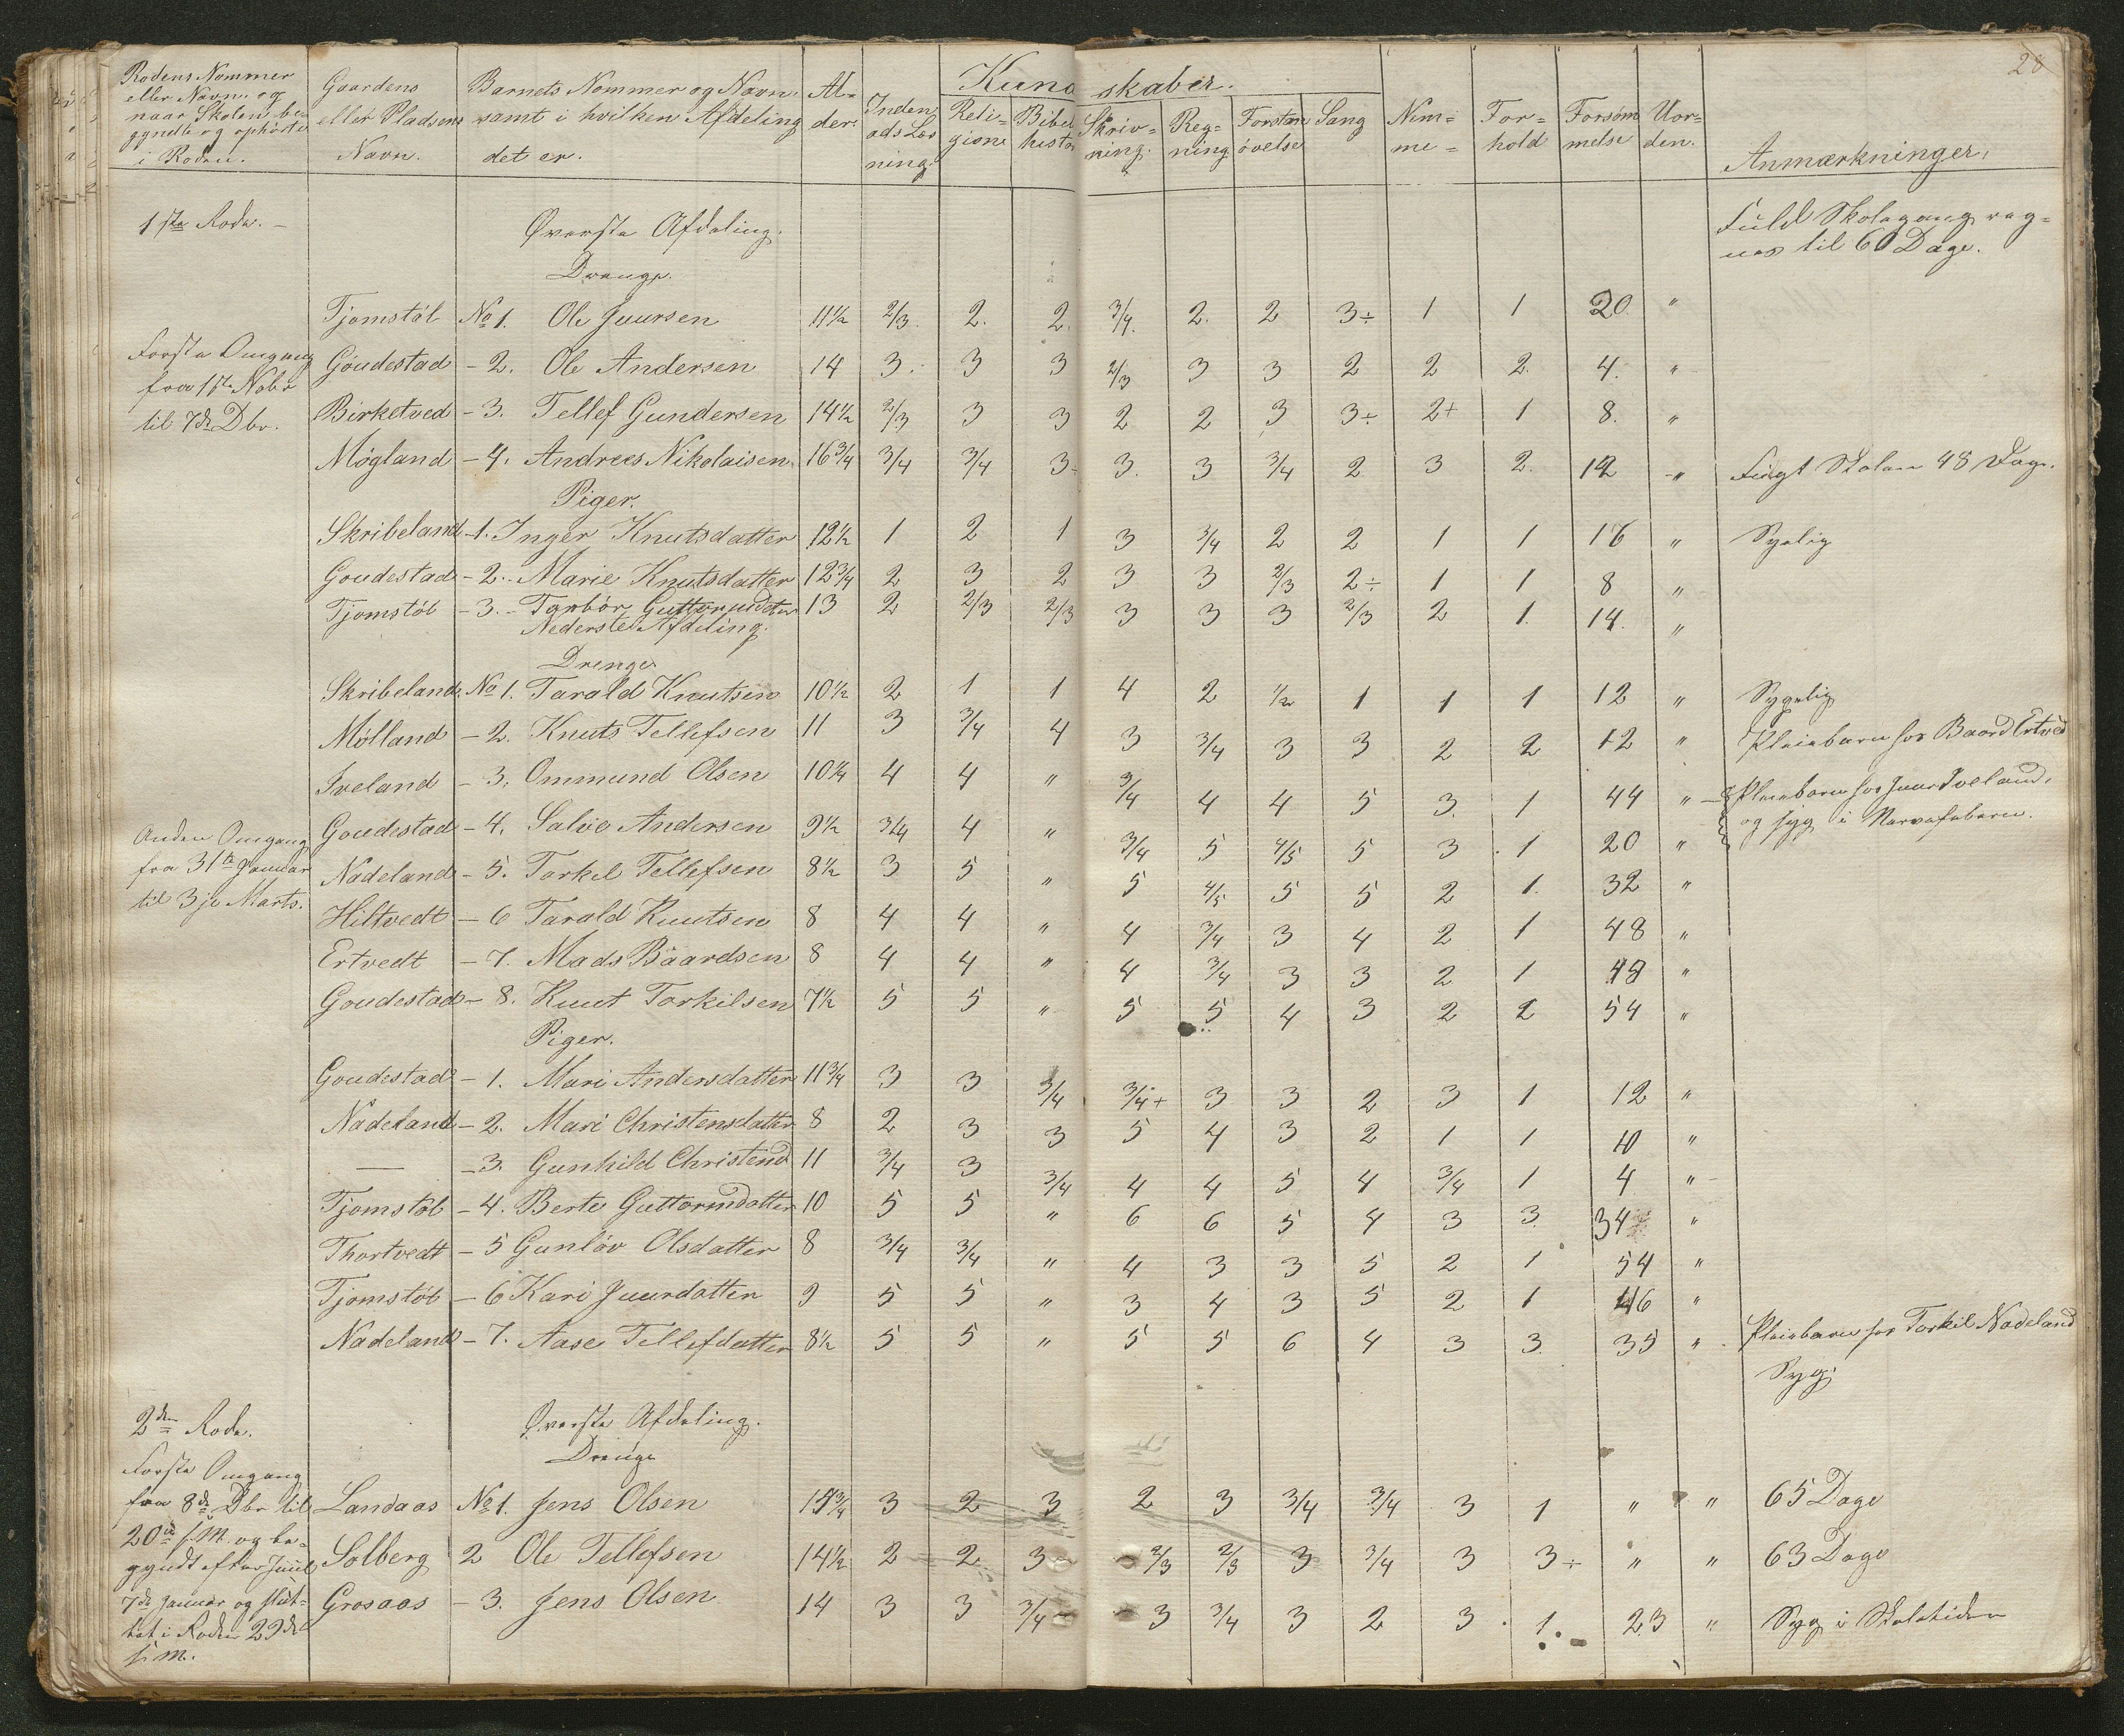 28
Rodens Nommer eller Navn og naar Skolen begyndte og ophørte i Roden. | Gaardens eller Pladsens Navn. | Barnets Nommer og Navn samt i hvilken Afdeling det er. | Alder | Kundskaber. Indenads Læsning. | Religion | Bibelhistor | Skrivning. | Regning | Forstandsøvelse | Sang | Nemme | Forhold | Forsømmelse | Uorden. | Anmærkninger.
1ste Rode. Øverste Afdeling. Fuld Skolegang reg=
Drenge. nes til 60 Dage.
Tjomstøl No 1. Ole Juursen 11½ 2/3. 2. 2. 3/4. 2. 2 3÷ 1 1 20. "
Første Omgang
Goudestad - 2. Ole Andersen 14 3. 3 3 2/3 3 3 2 2 2. 4. "
fra Nobr
Birketved - 3. Tellef Gundersen 14½ 2/3 3 3 2 2 3 3÷ 2+ 1 8. "
til 7de Dbr.
Møgland - 4. Andrees Nikolaisen 16¾ 3/4 3/4 3 3. 3 3/4 2 3 2. 12 " Søgt Skolen 48 Dage.
Piger.
Skribeland - 1. Inger Knutsdatter 12½ 1 2 1 3 3/4 2 2 1 1 16 " Sygelig
Goudestad - 2. Marie Knutsdatter 12¾ 2 3 2 3 3 2/3 2÷ 1 1 8 "
Tjomstøl - 3. Torbør 13 2 2/3 2/3 3 3 3 2/3 2 1. 14. "
Nederste Afdeling.
Drenge
Skribeland No 1. Tarald Knutsen 10½ 2 1 1 4 2 1/2 1 1 1 12 " Sygelig
Mølland - 2. Knuts Tellefsen 11 3 3/4 4 3 3/4 3 3 2 2 12 " Pleiebarn hos Baard Ertved
Iveland - 3. Ommund Olsen 10¼ 4 4 " 3/4 4 4 5 3. 1 44 " Pleiebarn hos Juur Iveland,
og syg i Nervefeberen.
Goudestad - 4. Salve Andersen 9½ 3/4 4 " 3/4 5 4/5 5 3 1 20 "
Anden Omgang
fra 31te Januar
til 3je Marts.
Nadeland - 5. Torkel Tellefsen 8½ 3 5 " 5 4/5 5 5 2 1. 32 "
Hiltvedt - 6 Tarald Knutsen 8 4 4 " 4 3/4 3 4 2 1 48 "
Ertvedt - 7. Mads Baardsen 8 4 4 " 4 3/4 3 3 2 1 48 "
Goudestad - 8. Knut Torkilsen 7½ 5 5 " 5 5 4 3 2 2 54 "
Piger.
Goudestad - 1. Mari Andersdatter 11¾ 3 3 3/4 3/4+ 3 3 2 3 1 12 "
Nadeland - 2. Mari Christensdatter 8 2 3 3 5 4 3 2 1 1 10 "
— - 3. Gunhild Christensd 11 3/4 3 3/4 4 4 5 4 3/4 1 4 "
Tjomstøl - 4. Berte Guttormsdatter 10 5 5 " 6 6 5 4 3 3. 34 "
Thortvedt - 5 Gunløv Olsdatter 8 3/4 3/4 " 4 3 3 5 2 1 54 "
Tjomstøl - 6 Kari Juurdatter 9 5 5 " 3 4 3 5 2 1 46 "
Nadeland - 7. Aase Tellefdatter 8½ 5 5 " 5 5 6 4 3 3. 35 " Pleiebarn hos Torkil Nadeland
Syg.
2den Rode. Øverste Afdeling.
Første Omgang Drenge
fra 8de Dbr til
Landaas No 1. Jens Olsen 3 2 3 2 3 3/4 3/4 3 1 " " 65 Dage
20de s. M. og be=
gyndt efter Juul
Solberg 2 Ole Tellefsen 14½ 2 2 3 2/3 2/3 3 3/4 3 3÷ " " 63 Dage
7de Januar og slut=
Grosaas - 3. Jens Olsen 14 3 3 3/4 3 3/4 3 2 3 1. 23 " Syg i Skoletiden
tet i Roden 29de
s. M.